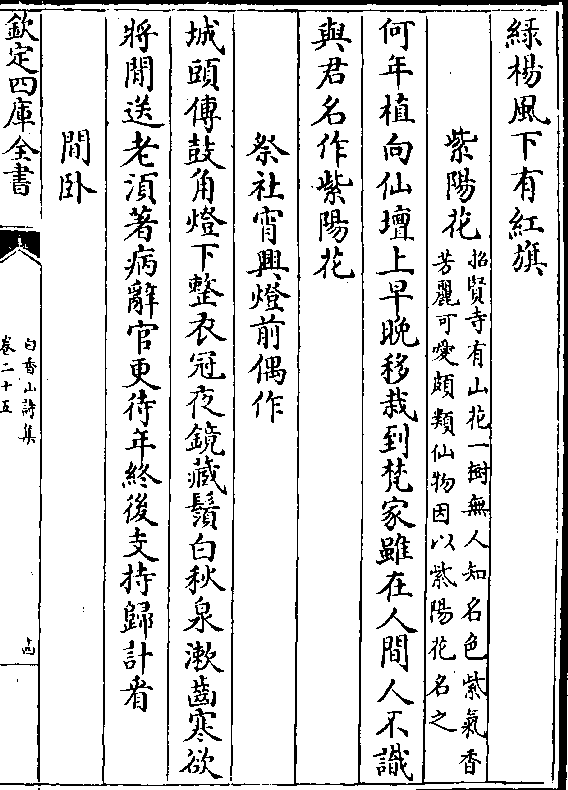 綠楊風下有紅旗
紫陽花
招賢寺有山花一樹無人知名色紫氣香
芳麗可愛頗類仙物因以紫陽花名之
何年植向仙壇上早晚移栽到梵家雖在人間人不識
與君名作紫陽花
祭社宵興燈前偶作
城頭傳鼓角燈下整衣冠夜鏡藏鬚白秋泉漱齒寒欲
將閒送老須著病辭官更待年終後支持歸計看
閒卧
欽定四庫全書
白香山詩集
卷二十五
古